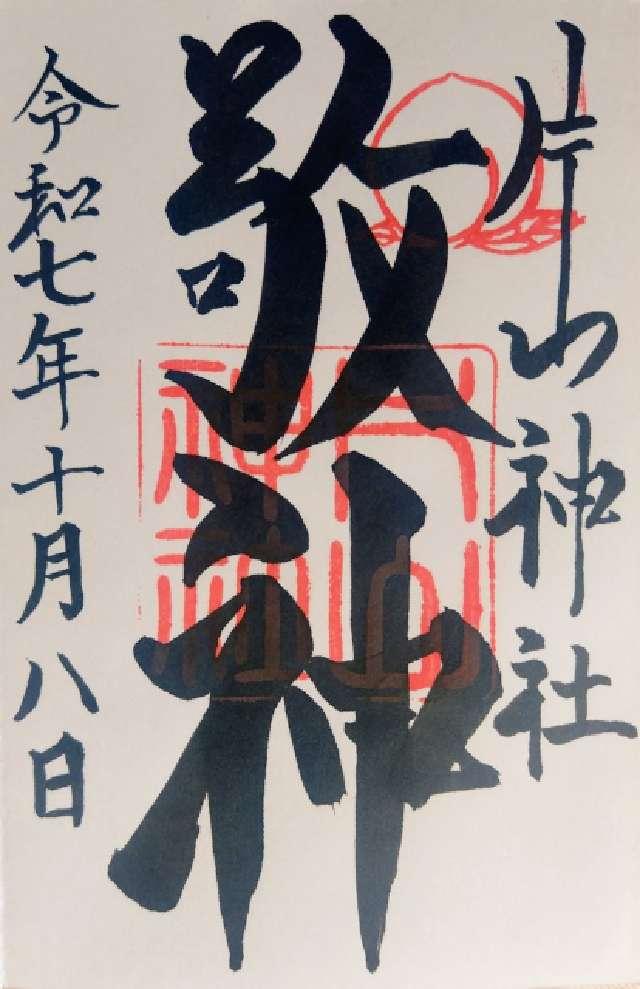 片山神社
敬神
片山神社
令和七年十月八日